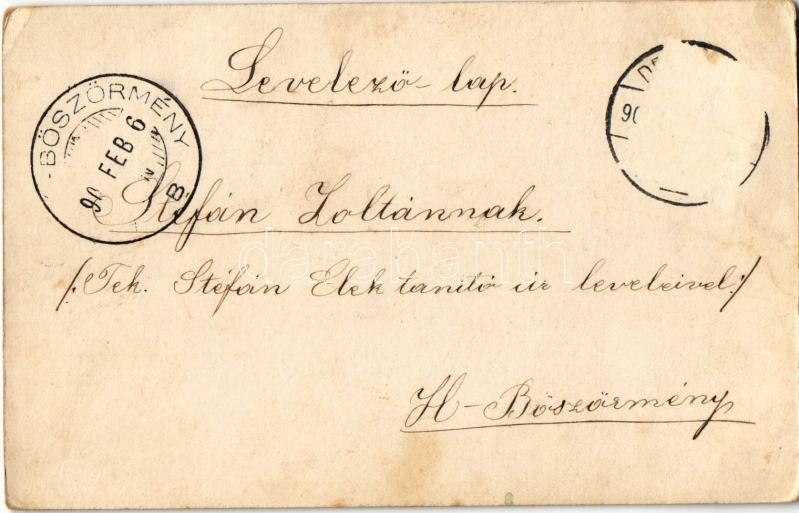 Levelező-lap.
-BÖSZÖRMÉNY
90 FEB 6
B
90
Stéfán Zoltánnak.
darabanth
/: Tek. Stéfán Elek tanító úr leveleivel :/
H-Böszörmény